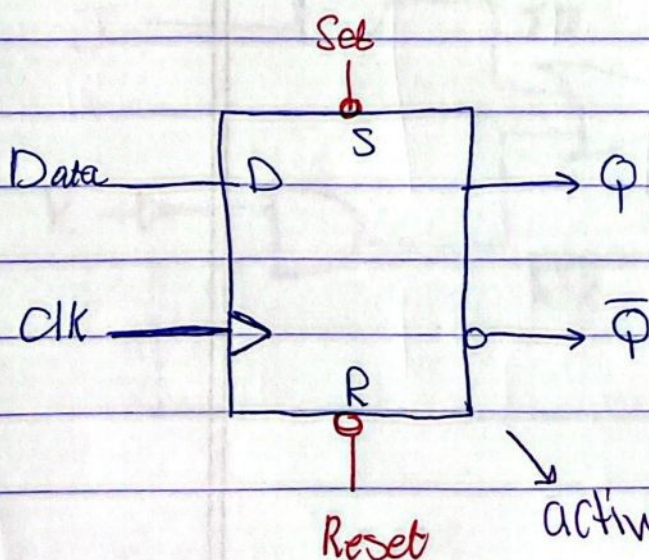 Set
S
Data D Q
Clk Q̅
R
Reset